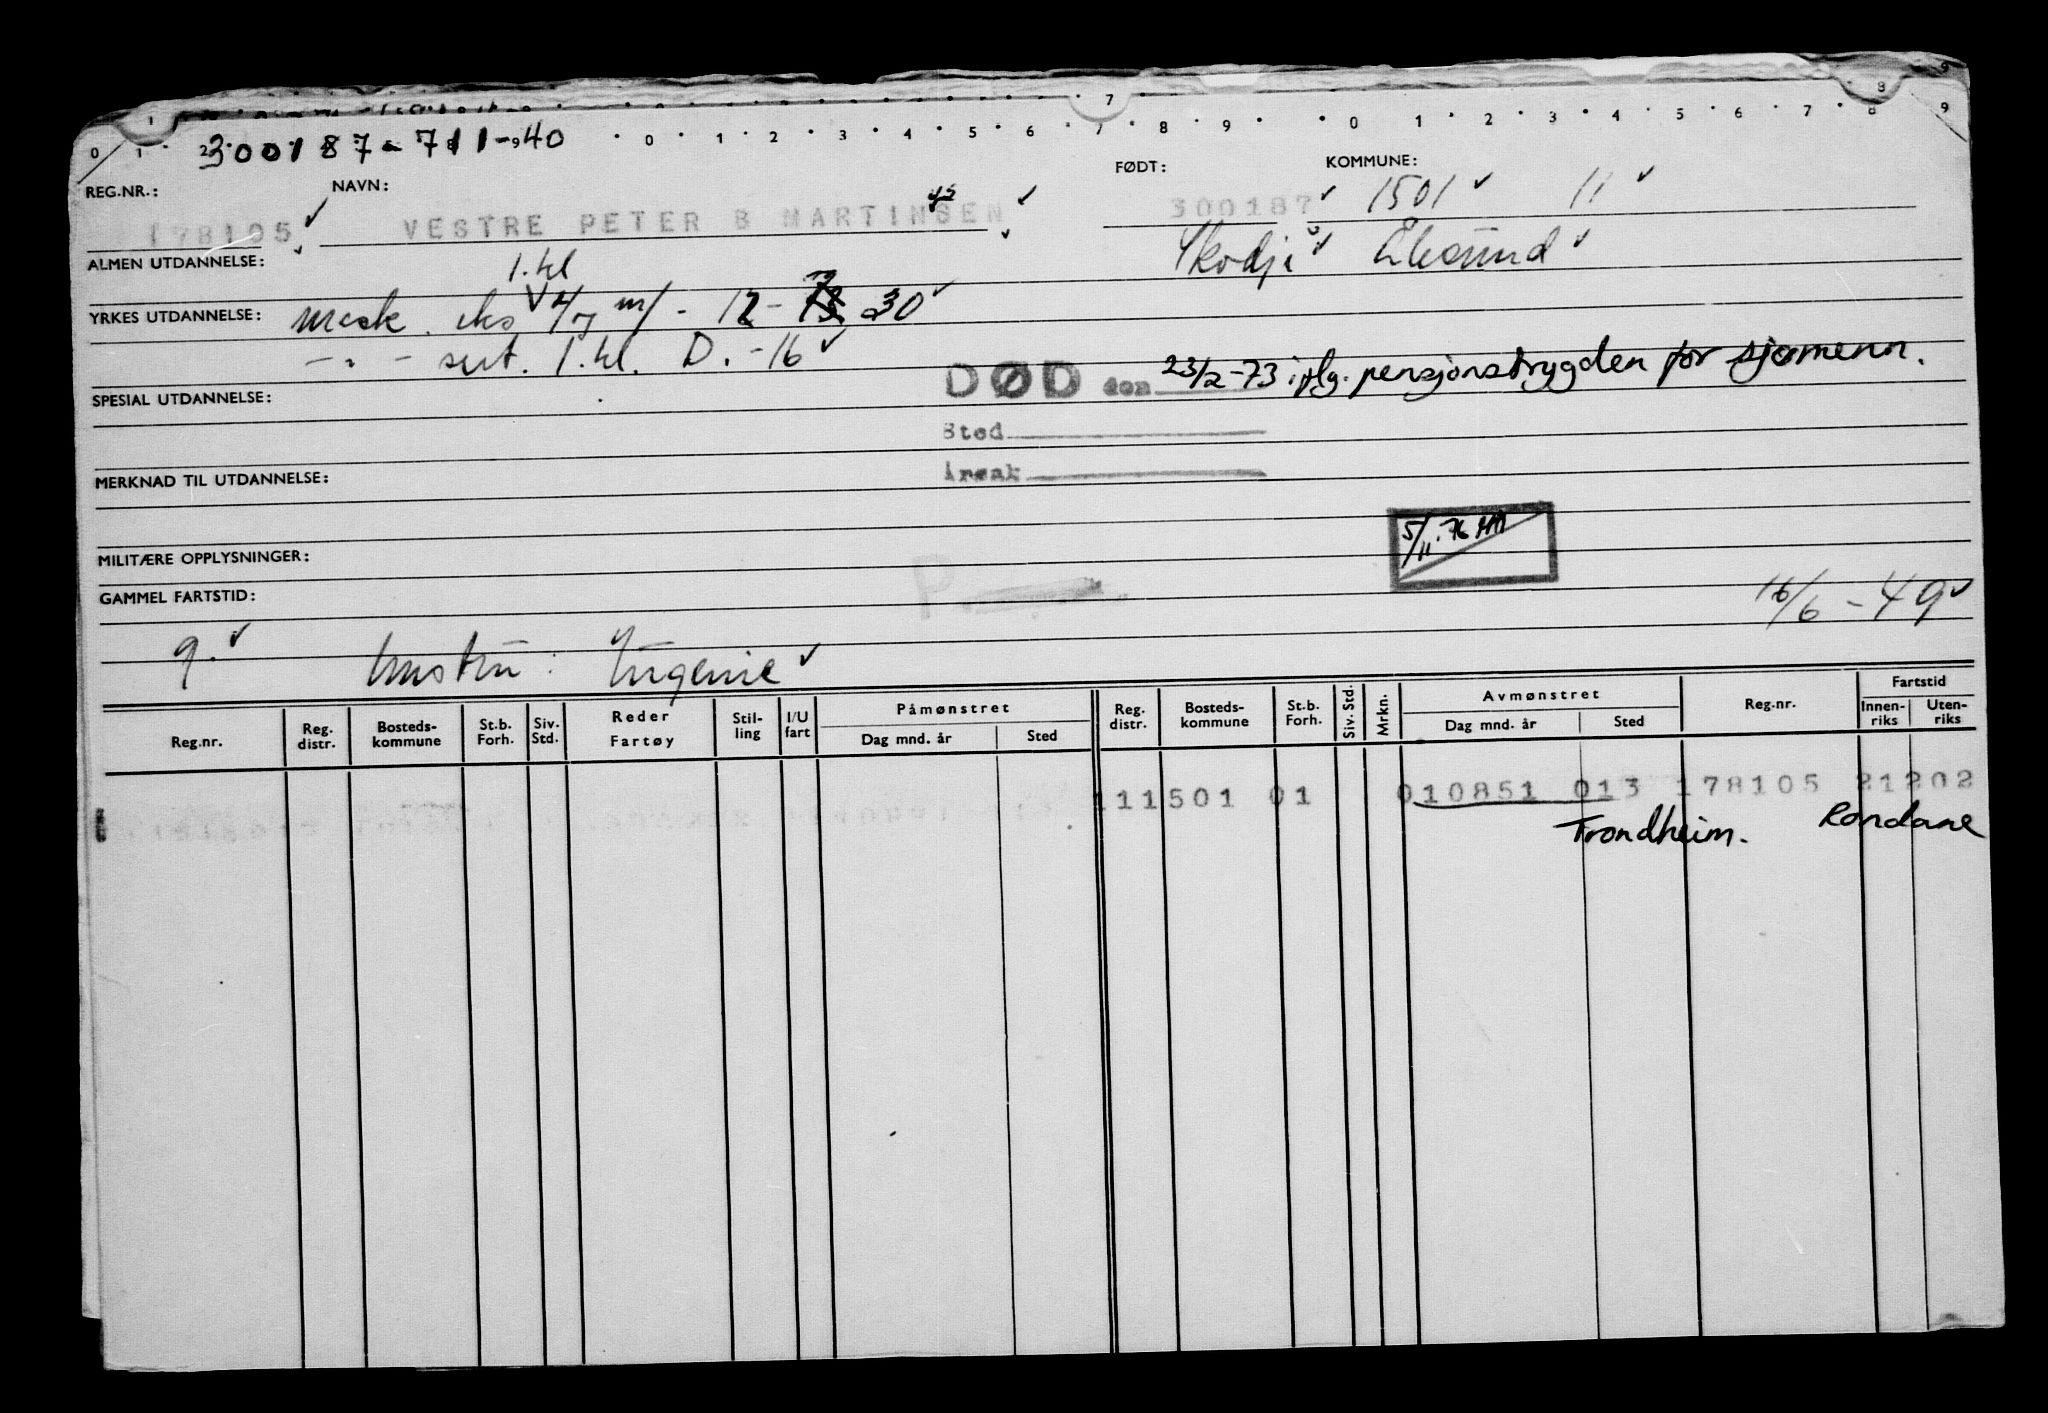 7 8 9
0 1 2 0 1 2 3 4 5 6 7 8 9 0 1 2 3 4 5 6 7 8 9
300187-711-40
REG.NR.: NAVN: FØDT: KOMMUNE:
178105 VESTRE PETER B MARTINSEN 300187 1501 11
ALMEN UTDANNELSE: Skodje Ålesund
1. kl
YRKES UTDANNELSE: mask. eks 30
-"- sert. 1. kl. D. -16
DØD den 23/2-73 iflg. pensjonstrygden for sjømenn.
SPESIAL UTDANNELSE:
Sted
Årsak
MERKNAD TIL UTDANNELSE:
5/11.76
MILITÆRE OPPLYSNINGER:
P
GAMMEL FARTSTID:
16/6-49
9. hustru: Eugenie
Reg.nr. Reg. distr. Bosteds-kommune St.b. Forh. Siv. Std. Reder Fartøy Stil-ling I/U fart Påmønstret Dag mnd. år Sted Reg. distr. Bosteds-kommune St.b. Forh. Siv. Std. Mrkn. Avmønstret Dag mnd. år Sted Reg.nr. Fartstid Innen-riks Uten-riks
111501 01 010851 013 178105 21202
Trondheim. Rondane